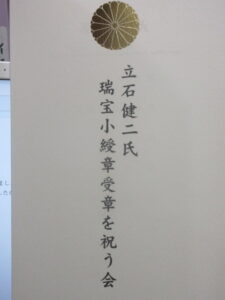 立石健二氏
瑞宝小綬章受章を祝う会